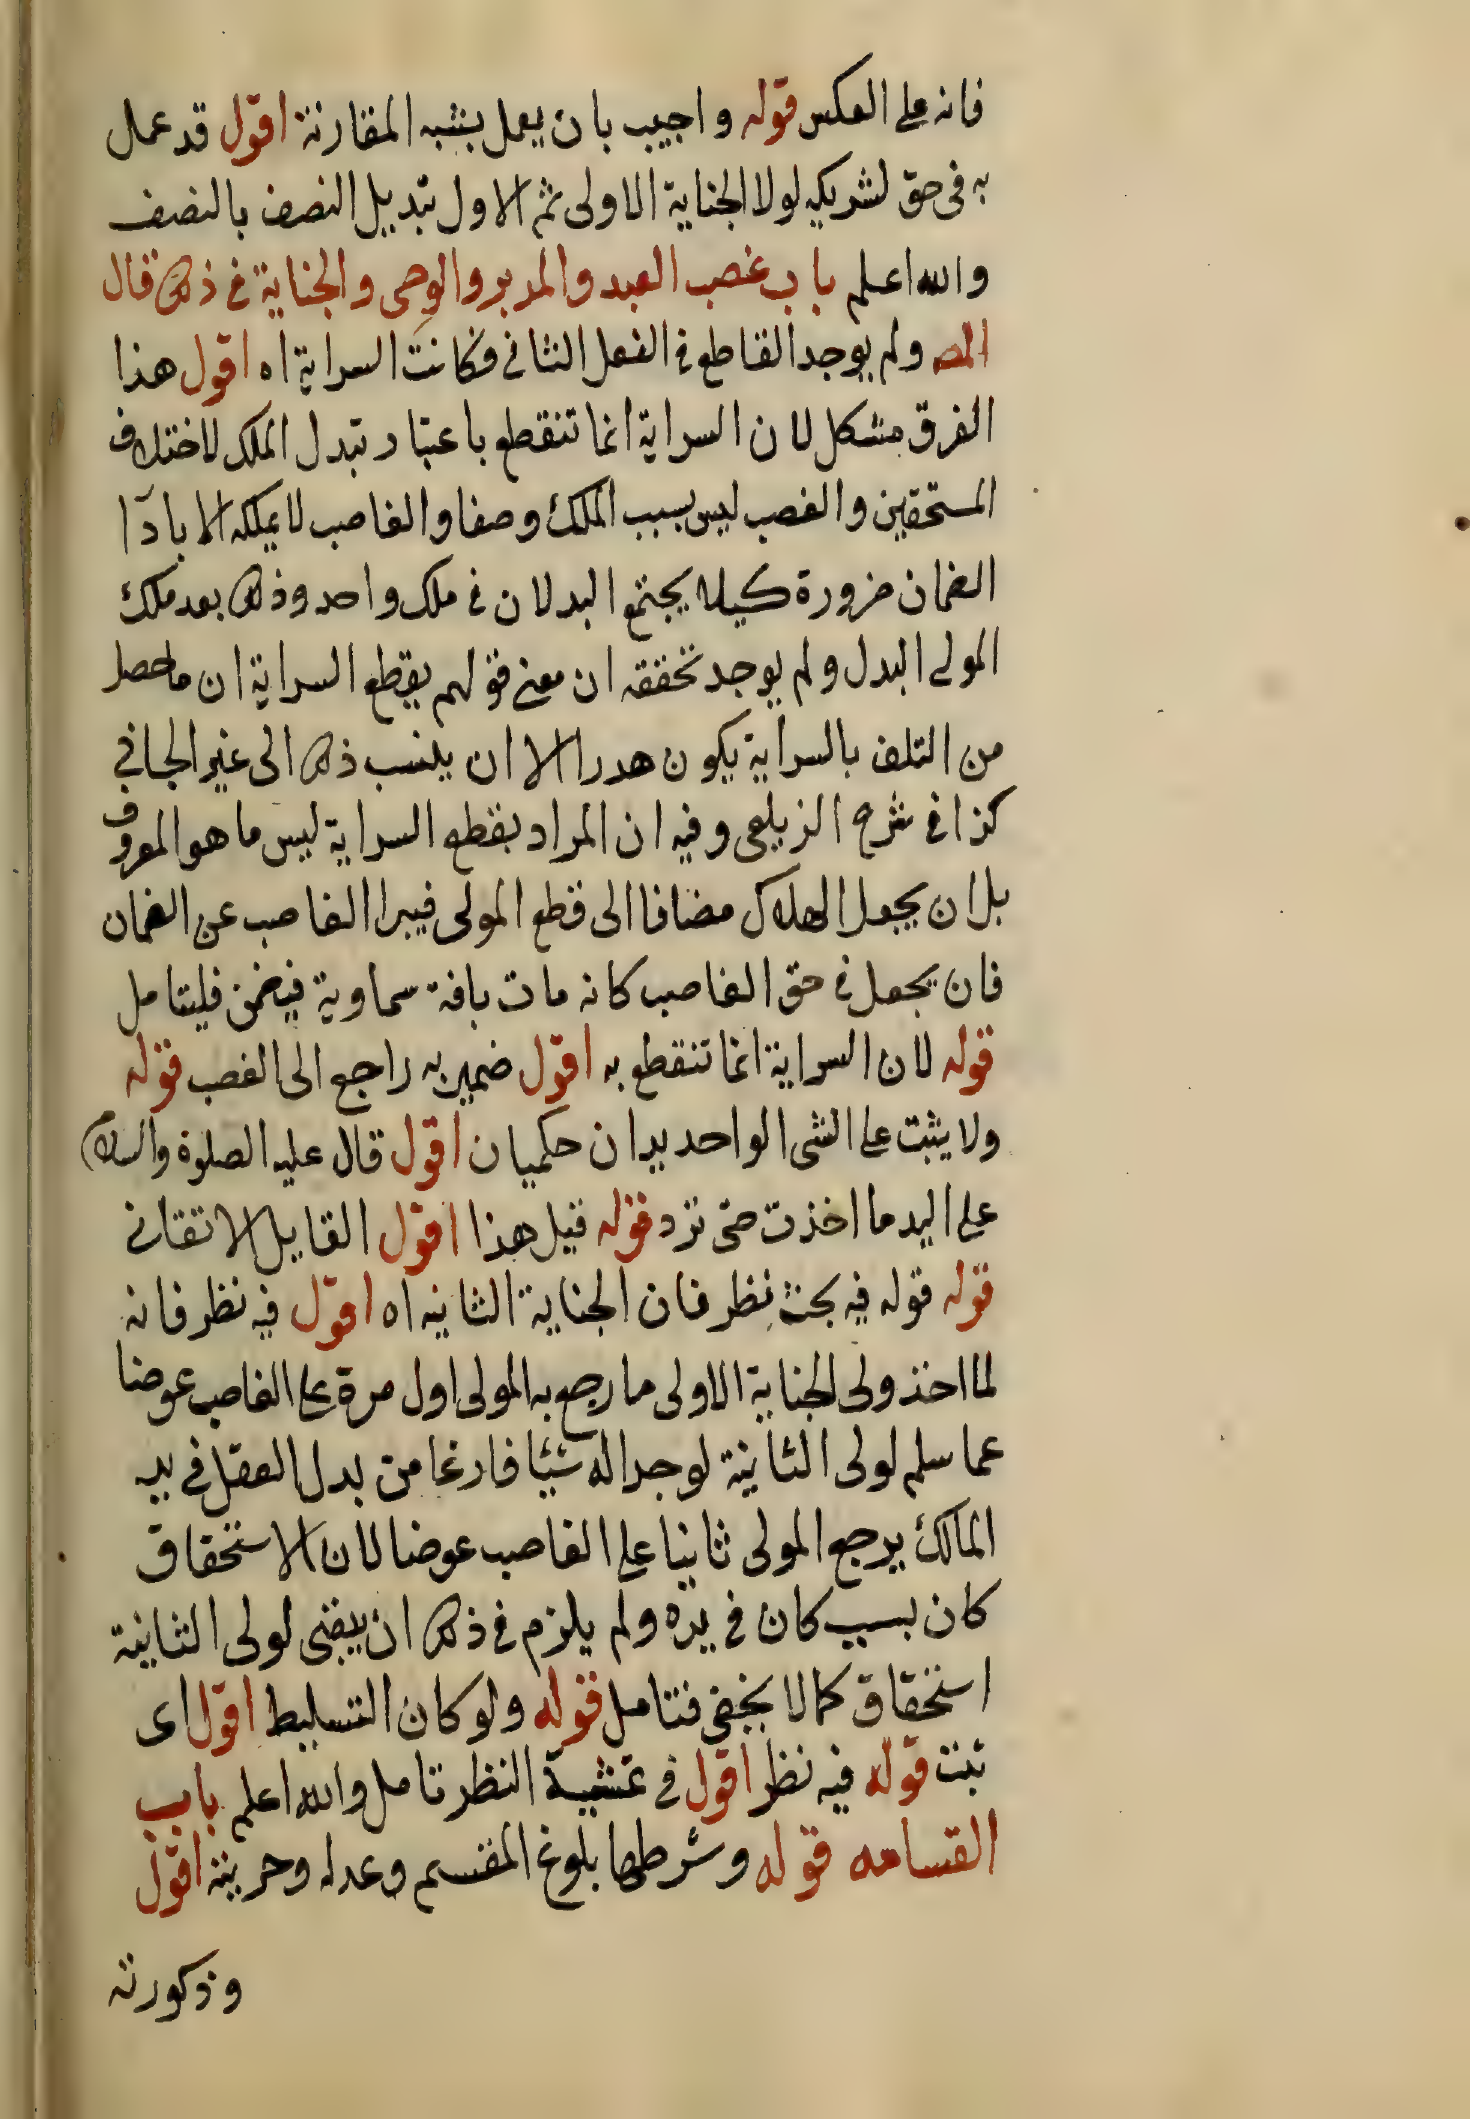 فانه على العكس قوله واجيب بان يعمل بشبه المقارنة اقول قد عمل
به فى حق لشريكه لولا الجناية الاولى ثم الاول تبديل النصف بالنصف
والله اعلم باب غصب العبد والمدبر والوحى والجناية فى ذلك قال
المص ولم يوجد القاطع فى الفعل الثانى فكانت السراية اه اقول هذا
الفرق مشكل لان السراية انما تنقطع باعتبار تبدل الملك لاختلاف
المستحقين والغصب ليس بسبب الملك وصفا والغاصب لا يملكه الا بادآ
الضمان ضرورة كيلا يجتمع البدلان فى ملك واحد وذلك بعد ملك
المولى البدل ولم يوجد تحققه ان معنى قولهم يقطع السراية ان ما حصل
من التلف بالسراية يكون هدرا الا ان ينسب ذلك الى غير الجانى
كذا فى شرح الزيلعى وفيه ان المراد بقطع السراية ليس ما هو المعروف
بل ان يجعل الهلاك مضافا الى قطع المولى فيبرا الغاصب عن الضمان
فان يجعل فى حق الغاصب كانه مات بافة سماوية فيضمن فليتامل
قوله لان السراية انما تنقطع به اقول ضمير به راجع الى الغصب قوله
ولا يثبت على الشى الواحد يدان حكميان اقول قال عليه الصلوة والسلام
على اليد ما اخذت حتى ترد قوله قيل هذا اقول القايل الاتقانى
قوله قوله فيه بحث نظر فان الجناية الثانيه اه اقول فيه نظر فانه
لما اخذ ولى الجناية الاولى ما رجع به المولى اول مرة على الغاصب عوضا
عما سلم لولى الثانية لوجد اله شيئا فارغا من بدل العقل فى يد
المالك يرجع المولى ثانيا على الغاصب عوضا لان الاستحقاق
كان بسبب كان فى يده ولم يلزم فى ذلك ان يبقى لولى الثانية
استحقاق كما لا يخفى فتامل قوله ولو كان التسليط اقول اى
ثبت قوله فيه نظر اقول فى تمشية النظر تامل والله اعلم باب
القسامه قوله وشرطها بلوغ المقسم وعدله وحريته اقول
وذكورته